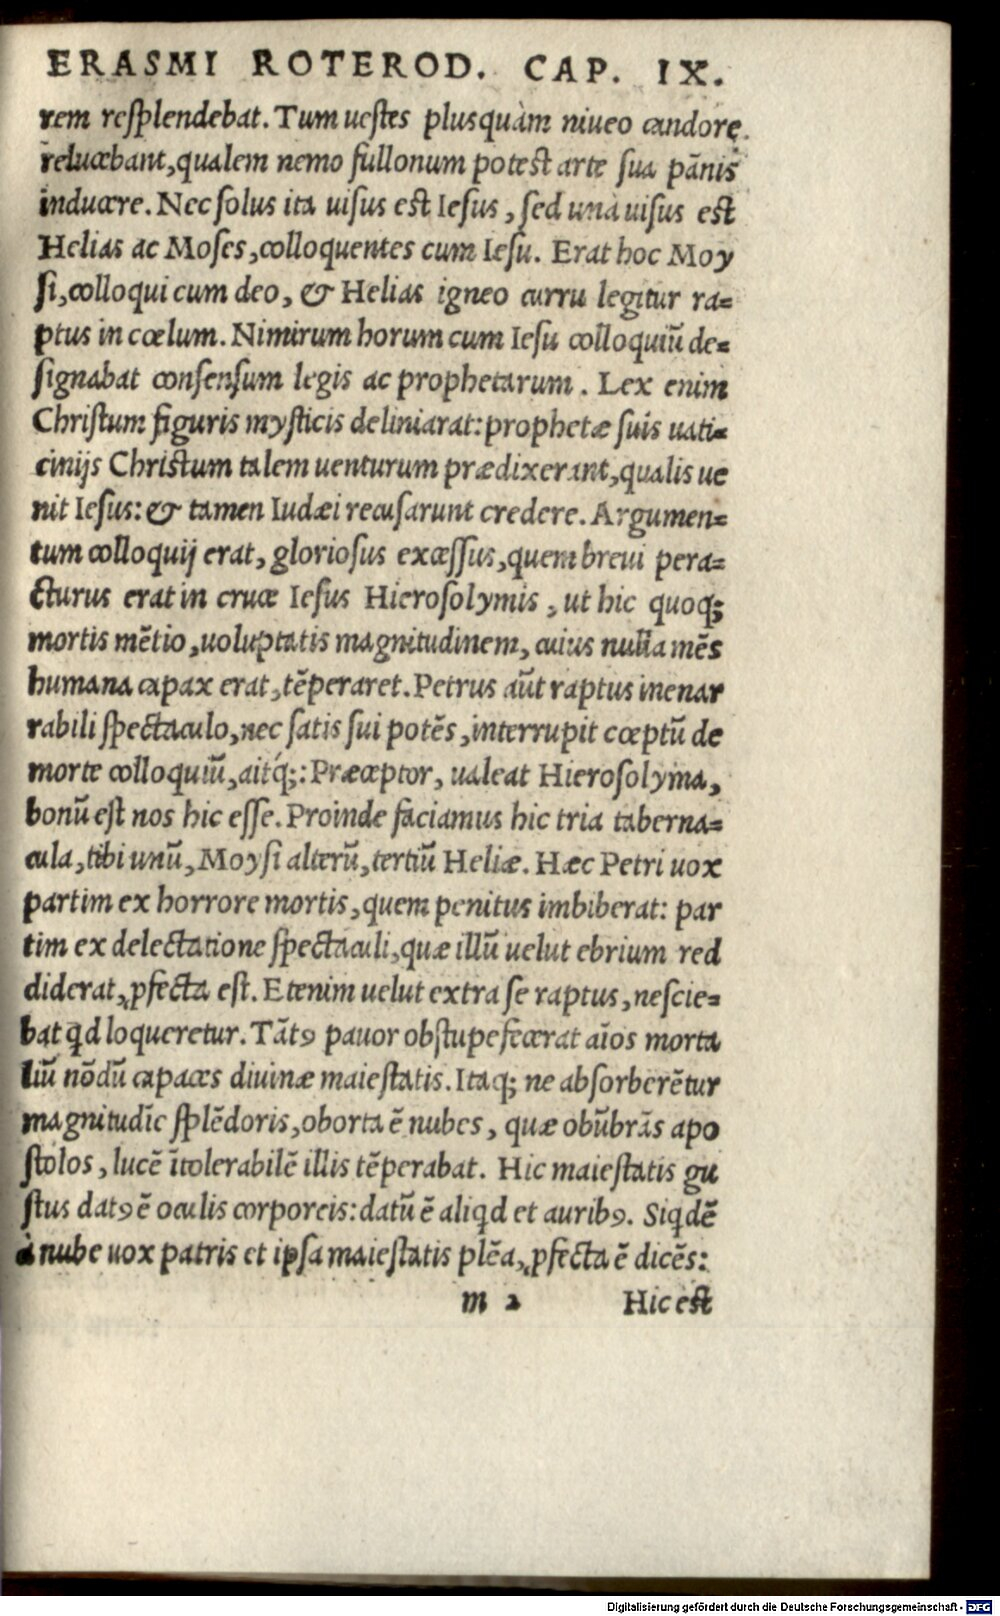 ERASMI ROTEROD. CAP. IX.
rem resplendebat. Tum uestes plusquàm niueo candore
relucebant, qualem nemo fullonum potest arte sua pānis
inducere. Nec solus ita uisus est Iesus, sed unà uisus est
Helias ac Moses, colloquentes cum Iesu. Erat hoc Moy
si, colloqui cum deo, & Helias igneo curru legitur ra-
ptus in cœlum. Nimirum horum cum Iesu colloquiū de-
signabat consensum legis ac prophetarum. Lex enim
Christum figuris mysticis deliniarat: prophetæ suis uati-
cinijs Christum talem uenturum prædixerant, qualis ue
nit Iesus: & tamen Iudæi recusarunt credere. Argumen-
tum colloquij erat, gloriosus excessus, quem breui pera-
cturus erat in cruce Iesus Hierosolymis, ut hic quoq;
mortis mētio, uoluptatis magnitudinem, cuius nulla mēs
humana capax erat, tēperaret. Petrus aūt raptus inenar
rabili spectaculo, nec satis sui potēs, interrupit cœptū de
morte colloquiū, aitq́;: Præceptor, ualeat Hierosolyma,
bonū est nos hic esse. Proinde faciamus hic tria taberna-
cula, tibi unū, Moysi alterū, tertiū Heliæ. Hæc Petri uox
partim ex horrore mortis, quem penitus imbiberat: par
tim ex delectatione spectaculi, quæ illū uelut ebrium red
diderat, ꝓfecta est. Etenim uelut extra se raptus, nescie-
bat qd loqueretur. Tātꝰ pauor obstupefecerat aīos morta
liū nōdū capaces diuinæ maiestatis. Itaq; ne absorberētur
magnitudīe splēdoris, oborta ē nubes, quæ obūbrās apo
stolos, lucē ītolerabilē illis tēperabat. Hic maiestatis gu
stus datꝰ ē oculis corporeis: datū ē aliqd et auribꝰ. Siqdē
à nube uox patris et ipsa maiestatis plēa, ꝓfecta ē dicēs:
m 2 Hic est
Digitalisierung gefördert durch die Deutsche Forschungsgemeinschaft - DFG